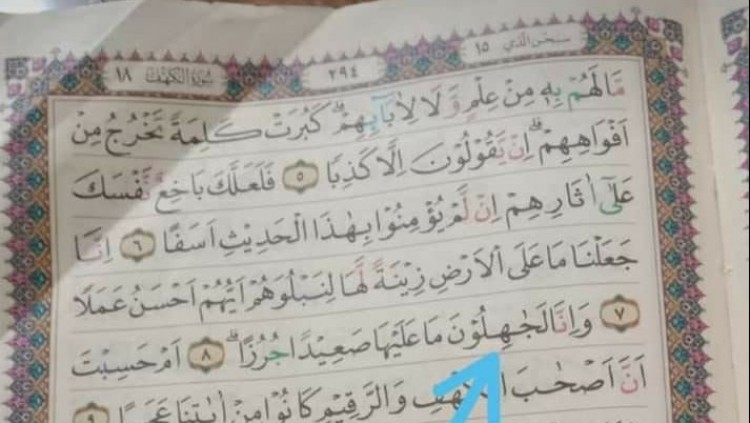 سُبْحٰنَ الَّذِي ١٥ ٢٩٤ سُوْرَةُ الْكَهْفِ ١٨
مَا لَهُمْ بِهٖ مِنْ عِلْمٍ وَّلَا لِاٰبَاۤىِٕهِمْۗ كَبُرَتْ كَلِمَةً تَخْرُجُ مِنْ
اَفْوَاهِهِمْۗ اِنْ يَّقُوْلُوْنَ اِلَّا كَذِبًا ٥ فَلَعَلَّكَ بَاخِعٌ نَّفْسَكَ
عَلٰٓى اٰثَارِهِمْ اِنْ لَّمْ يُؤْمِنُوْا بِهٰذَا الْحَدِيْثِ اَسَفًا ٦ اِنَّا
جَعَلْنَا مَا عَلَى الْاَرْضِ زِيْنَةً لَّهَا لِنَبْلُوَهُمْ اَيُّهُمْ اَحْسَنُ عَمَلًا
٧ وَاِنَّا لَجٰهِلُوْنَ مَا عَلَيْهَا صَعِيْدًا جُرُزًاۗ ٨ اَمْ حَسِبْتَ
اَنَّ اَصْحٰبَ الْكَهْفِ وَالرَّقِيْمِ كَانُوْا مِنْ اٰيٰتِنَا عَجَبًا ٩